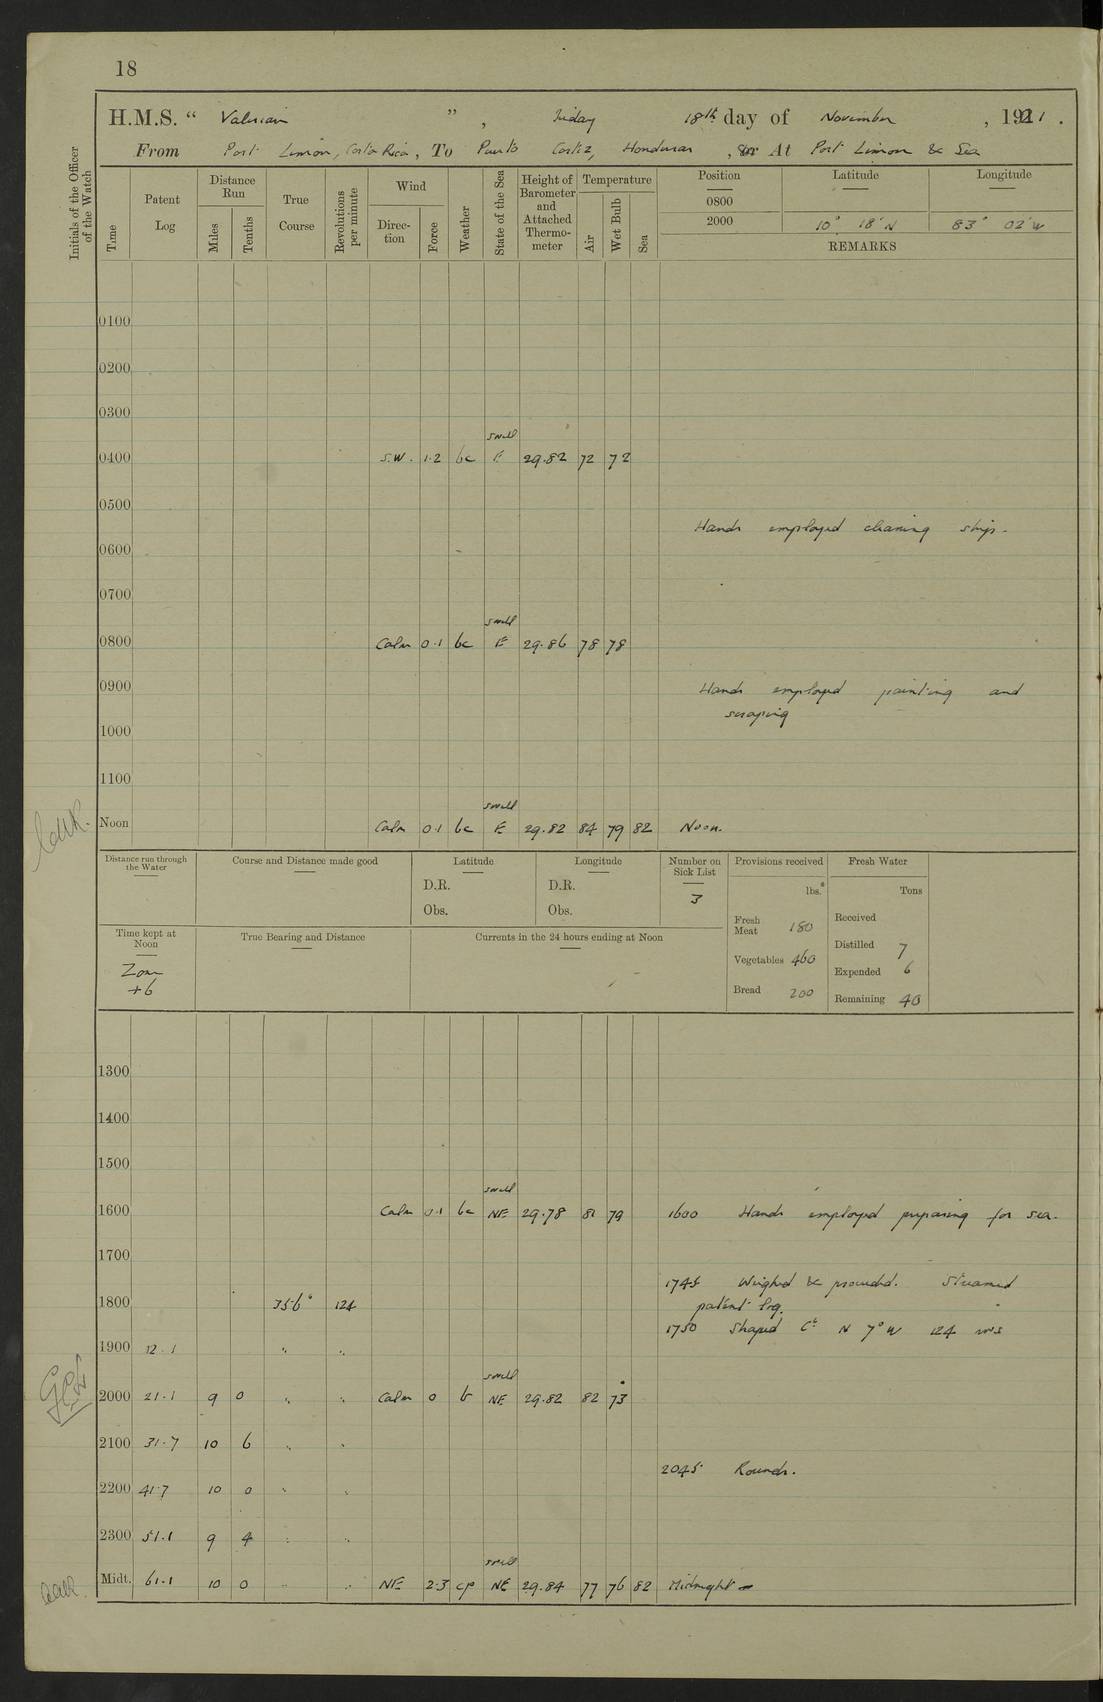 18
H.M.S. " Valerian " , Friday 18th day of November , 1921 .
From Port Limon, Costa Rica , To Puerto Cortez, Honduras , or At Port Limon & Sea
Initials of the Officer of the Watch
Time
Patent Log
Distance Run
Miles
Tenths
True Course
Revolutions per minute
Wind
Direction
Force
Weather
State of the Sea
Height of Barometer and Attached Thermometer
Temperature
Air
Wet Bulb
Sea
Position Latitude Longitude
0800
2000 10° 18' N 83° 02' W
REMARKS
0100
0200
0300
swell
0400 S.W. 1.2 bc E 29.82 72 72
0500
Hands employed cleaning ship.
0600
0700
swell
0800 Calm 0.1 bc E 29.86 78 78
0900 Hands employed painting and
scraping
1000
1100
swell
Noon Calm 0.1 bc E 29.82 84 79 82 Noon.
Distance run through the Water
Course and Distance made good
Latitude
D.R.
Obs.
Longitude
D.R.
Obs.
Number on Sick List
3
Provisions received
lbs.
Fresh Meat 180
Vegetables 460
Bread 200
Fresh Water
Tons
Received
Distilled 7
Expended 6
Remaining 40
Time kept at Noon
Zone
+6
True Bearing and Distance
Currents in the 24 hours ending at Noon
1300
1400
1500
swell
1600 Calm 0.1 bc NE 29.78 81 79 1600 Hands employed preparing for sea.
1700
1745 Weighed & proceeded. Streamed
patent log.
1800 356° 124
1750 Shaped Co N 7° W 124 revs
1900 12.1 " "
swell
2000 21.1 9 0 " " Calm 0 b NE 29.82 82 73
2100 31.7 10 6 " "
2045 Rounds.
2200 41.7 10 0 " "
2300 51.1 9 4 " "
swell
Midt. 61.1 10 0 " " NE 2.3 cp NE 29.84 77 76 82 Midnight